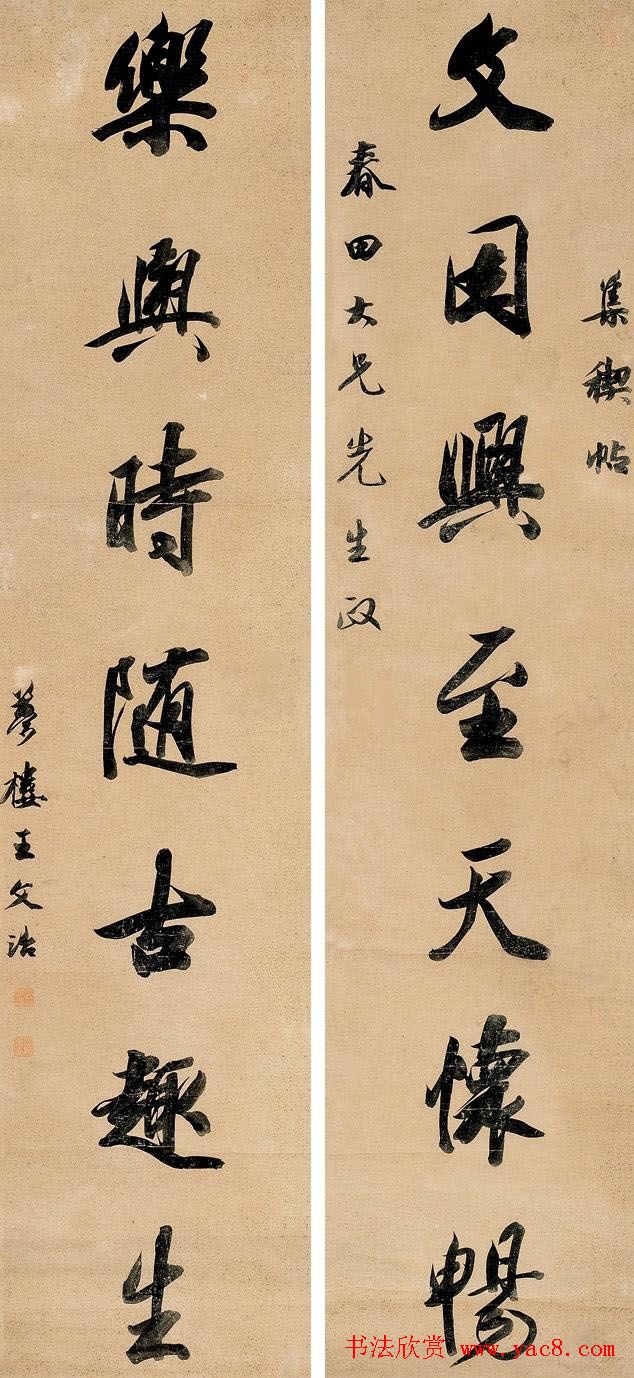 集禊帖
文因興至天懷暢
春田大兄先生政
樂與時随古趣生
夢樓王文治
书法欣赏 www.yac8.com